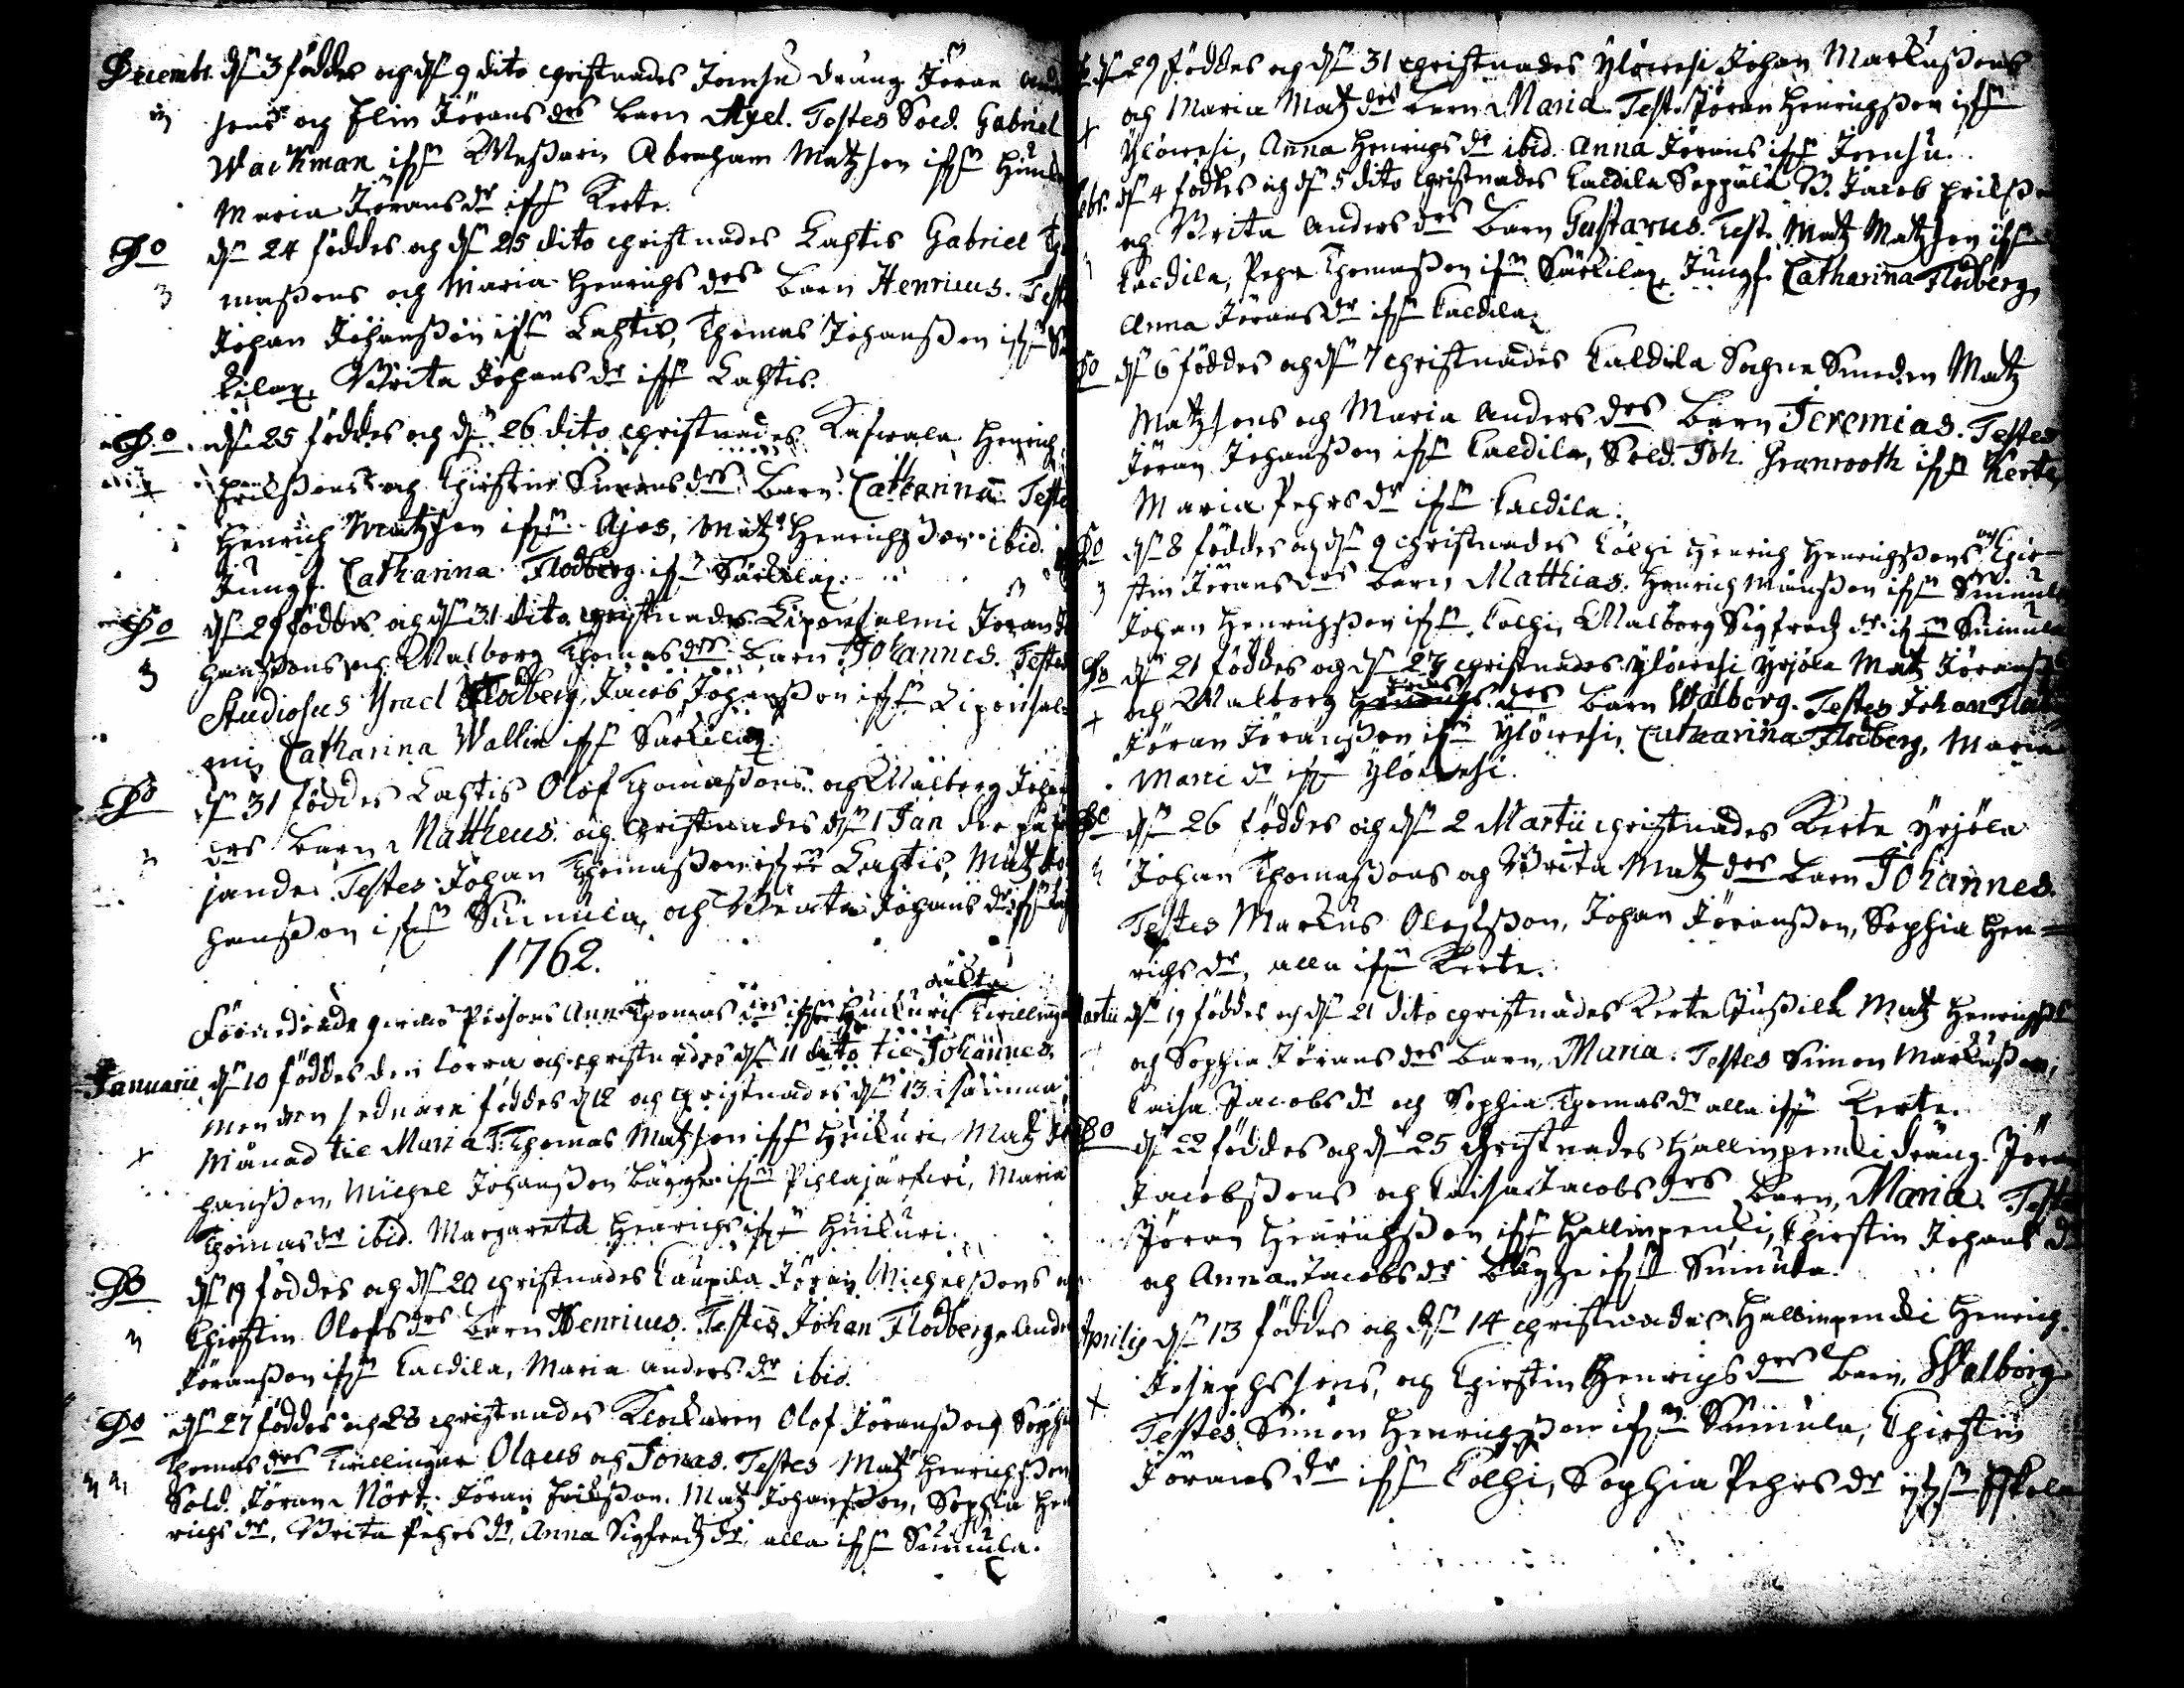 Decembr. dn 3 föddes och dn 9 dito christnades Joensu dräng Jöran And
sons och Elin Jörans drs barn Axel. Testes Sold. Gabriel
Wackman ifrn Messari, Abraham Matzson ifrn Huik
Maria Jörans dr ifrn Kerte.
Do dn 24 föddes och dn 25 dito christnades Lahtis Gabriel Tho
massons och Maria Henrichs drs barn Henricus. Test
Johan Johansson ifrn Lahtis, Thomas Johansson ifrn Sär
kilax, Brita Johans dr ifrn Lahtis.
Do dn 25 föddes och dn 26 dito christnades Henrich
Erikssons och Chirstin Simons drs barn Catharina Teste
Henrich Matzson ifrn Ajos, Matz Henrichsson ibid.
Jungf. Catharina Flodberg ifrn Särkilax.
Do dn 29 föddes och dn 31 dito christnades Liponsalmi Jöran Jo
hanssons och Walborg Thomas drs barn Johannes. Testes
Studiosus Israel Flodberg, Jacob Johansson ifrn Liponsal
mi, Catharina Wallin ifrn Särkilax
Do dn 31 föddes Lahtis Olof Thomassons och Walborg Joha
drs barn Mattheus och christnades dn 1 Jan der på föl
jande. Testes Johan Thomasson ifrn Lahtis, Matz Jo
hansson ifrn Suinula, och Beata Johans dr ifrn Lah
1762.
ächta
Thomas drs ifrn Huikuri Twillingar
Januarii dn 10 föddes den förra och christnades dn 11 dito til Johannes,
men den sednare föddes d 12 och christnades dn 13 i samma
månad til Maria T. Thomas Matzson ifrn Huikuri, Matz Jo
hansson, Michel Johansson Bägge ifrn Pihlajärfwi, Maria
Thomas dr ibid. Margareta Henrichs ifrn Huikuri.
Do dn 19 föddes och dn 20 christnades Kaupila Jöran Michelssons och
Chirstin Olofs drs barn Henricus. Testes Johan Flodberg, Ander
Jöransson ifrn Caldila, Maria Anders dr ibid.
Do dn 27 föddes och 28 christnades Klockaren Olof Jöranss och Sophia
Thomas drs Twillingar Olaus och Jonas. Testes Matz Henrichsson
Sold. Jöran Nört. Jöran Eriksson. Matz Johansson, Sophia Hen
richs dr, Brita Pehrs dr, Anna Sigfredz dr, alla ifrn Suinula.
dn 29 föddes och dn 31 christnades Ylöwesi Johan Markussons
och Maria Matz drs barn Maria. Test. Jöran Henrichsson ifrn
Ylöwesi, Anna Henrichs dr ibid. Anna Jörans ifrn Joensu.
Febr. dn 4 föddes och dn 5 dito christnades Caldila Seppälä B. Jacob Erikssons
och Brita Anders drs barn Gustavus. Test. Matz Matzson ifrn
Caldila, Pehr Thomasson ifrn Särkilax, Jungf. Catharina Flodberg,
Anna Jörans dr ifrn Caldila.
Do dn 6 föddes och dn 7 christnades Caldila Sochne Smeden Matz
Matzsons och Maria Anders drs barn Jeremias. Testes
Jöran Johansson ifrn Caldila, Sold. Joh. Granrooth ifrn Kerte,
Maria Pehrs dr ifrn Caldila.
Do dn 8 föddes och dn 9 christnades Colhi Henrich Henrichssons och Chir
stin Jörans drs barn Matthias. Henrich Månsson ifrn Suinula
Johan Henrichsson ifrn Colhi, Walborg Sigfredz dr ifrn Suinula
Do dn 21 föddes och dn 27 christnades Ylöwesi Yrjölä Matz Jöranss
och Walborg Eriks drs barn Walborg. Testes Johan Flod
Jöran Jöransson ifrn Ylöwesi, Catharina Flodberg, Maria
Marci dr ifrn Ylöwesi.
Do dn 26 föddes och dn 2 Martii christnades Kerte Yrjölä
Johan Thomassons och Brita Matz drs barn Johannes.
Testes Markus Olofsson, Johan Jöransson, Sophia Hen=
richs dr, alla ifrn Kerte.
Martii dn 19 föddes och dn 21 dito christnades Kerte Jussila Matz Henrichss
och Sophia Jörans drs barn, Maria. Testes Simon Markusson,
Caisa Jacobs dr och Sophia Thomas dr alla ifrn Kerte.
Do dn 22 föddes och dn 25 christnades Hallinpenki dräng Jöran
Jacobssons och Caisa Jacobs drs barn, Maria. Testes
Jöran Henrichsson ifrn Hallinpenki, Chirstin Johans dr
och Anna Jacobs dr Bägge ifrn Suinula.
Aprilis dn 13 föddes och dn 14 christnades Hallinpenki Henrich
Josephssons, och Chirstin Henrichs drs barn, Walborg
Testes, Simon Henrichsson ifrn Suinula, Chirstin
Jörans dr ifrn Colhi, Sophia Pehrs dr ifrn Eskola